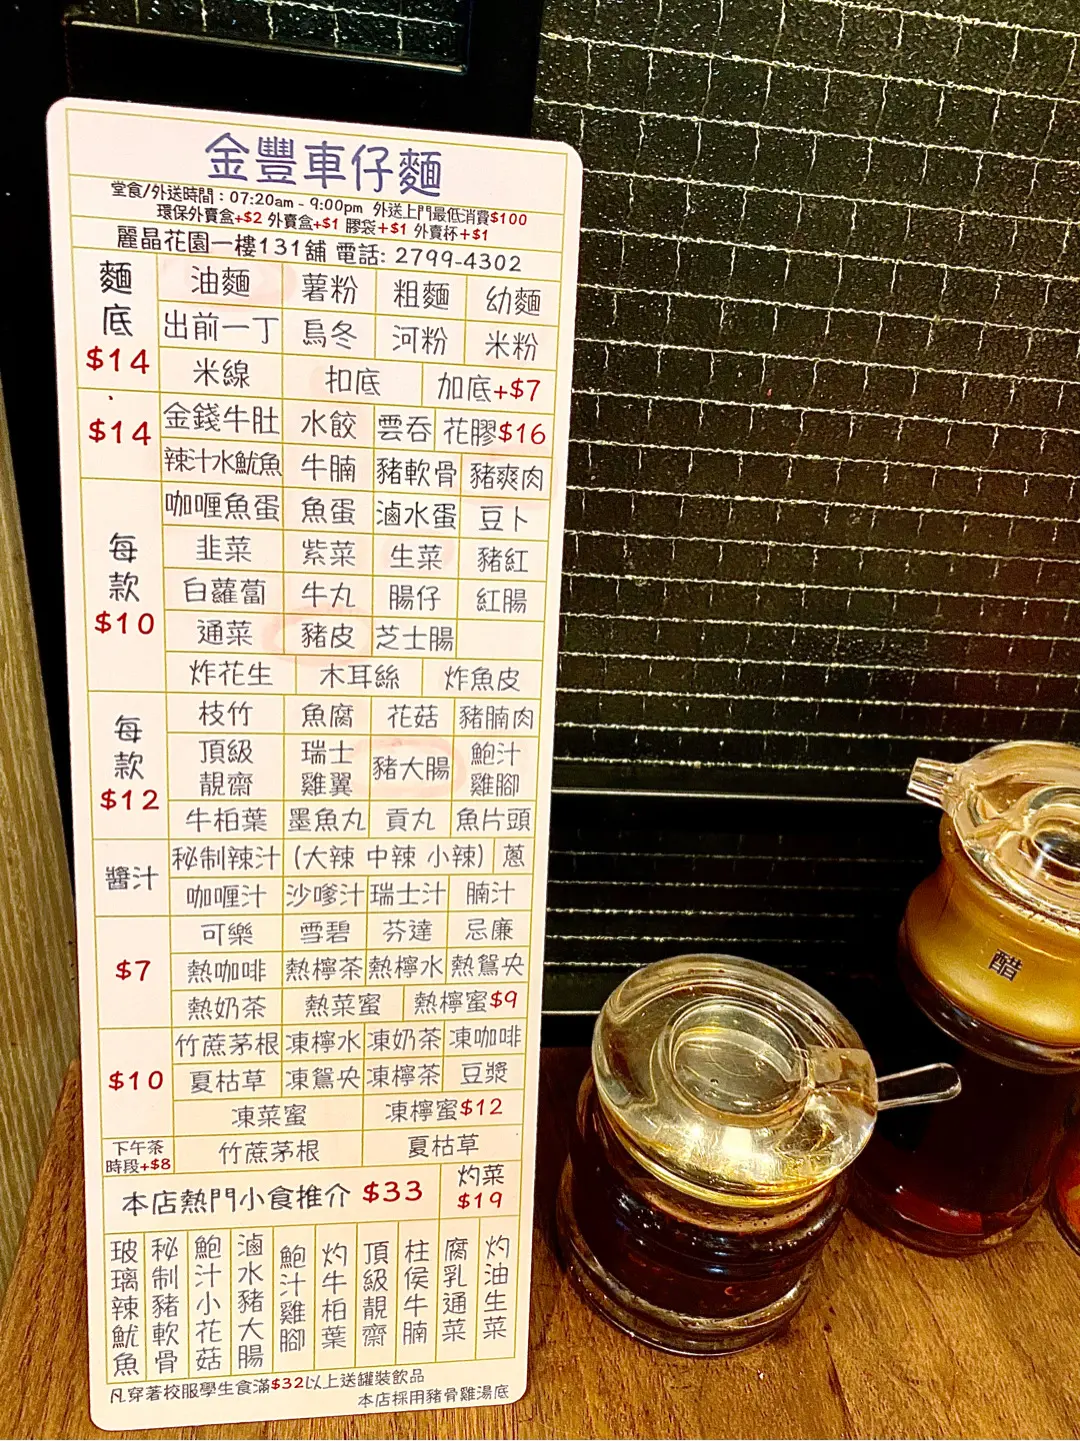 金豐車仔麵
堂食/外送時間：07:20am - 9:00pm 外送上門最低消費$100
環保外賣盒+$2 外賣盒+$1 膠袋+$1 外賣杯+$1
麗晶花園一樓131舖 電話: 2799-4302
麵底 $14
油麵 薯粉 粗麵 幼麵
出前一丁 烏冬 河粉 米粉
米線 扣底 加底+$7
$14
金錢牛肚 水餃 雲吞 花膠$16
辣汁水魷魚 牛腩 豬軟骨 豬爽肉
每款 $10
咖喱魚蛋 魚蛋 滷水蛋 豆卜
韭菜 紫菜 生菜 豬紅
白蘿蔔 牛丸 腸仔 紅腸
通菜 豬皮 芝士腸
炸花生 木耳絲 炸魚皮
每款 $12
枝竹 魚腐 花菇 豬腩肉
頂級靚齋 瑞士雞翼 豬大腸 鮑汁雞腳
牛柏葉 墨魚丸 貢丸 魚片頭
醬汁
秘制辣汁 (大辣 中辣 小辣) 蔥
咖喱汁 沙嗲汁 瑞士汁 腩汁
$7
可樂 雪碧 芬達 忌廉
熱咖啡 熱檸茶 熱檸水 熱鴛央
熱奶茶 熱菜蜜 熱檸蜜$9
$10
竹蔗茅根 凍檸水 凍奶茶 凍咖啡
夏枯草 凍鴛央 凍檸茶 豆漿
凍菜蜜 凍檸蜜$12
下午茶時段+$8
竹蔗茅根 夏枯草
本店熱門小食推介 $33
灼菜 $19
玻璃辣魷魚
秘制豬軟骨
鮑汁小花菇
滷水豬大腸
鮑汁雞腳
灼牛柏葉
頂級靚齋
柱侯牛腩
腐乳通菜
灼油生菜
凡穿著校服學生食滿$32以上送罐裝飲品
本店採用豬骨雞湯底
醋